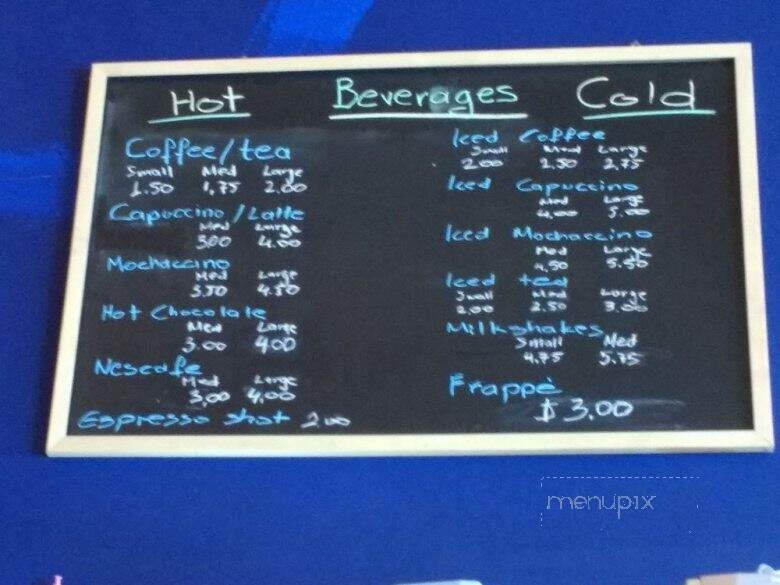 Hot Beverages Cold
Coffee/tea
Small Med Large
1.50 1,75 2.00
Capuccino/Latte
Med Large
300 4.00
Mochaccino
Med Large
3.50 4.50
Hot Chocolate
Med Large
3.00 4.00
Nescafe
Med Large
3,00 4,00
Espresso shot 2.00
Iced Coffee
Small Med Large
2.00 2,50 2,75
Iced Capuccino
Med Large
4,00 5.00
Iced Mochaccino
Med Large
4,50 5.50
Iced tea
Small Med Large
2.00 2.50 3.00
Milkshakes
Small Med
4.75 5.75
Frappè
$3,00
menupix